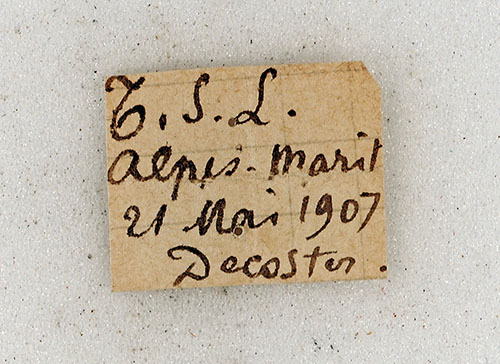 T. S. L.
Alpes-Marit
21 Mai 1907
Decoster.